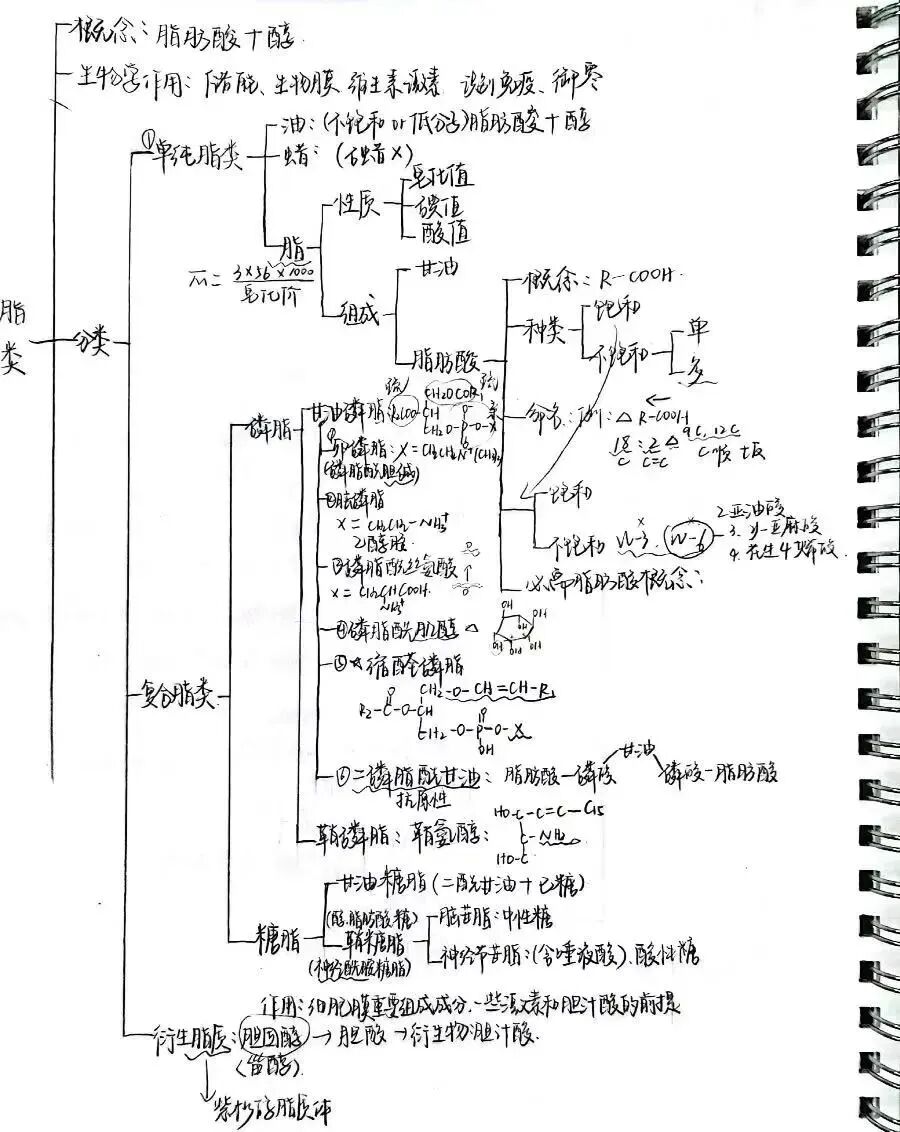 概念：脂肪酸+醇
生物学作用：储能、生物膜、维生素激素 识别免疫、御寒
①单纯脂类
油：(不饱和or低分子)脂肪酸+醇
蜡：(石蜡×)
脂
性质
皂化值
碘值
酸值
M = 3×56×1000 / 皂化价
组成
甘油
脂肪酸
概念：R-COOH.
种类
饱和
不饱和
单
多
脂类
分类
命名：例：△ R-COOH
18:2△ 9C,12C
C C=C C 顺 反
饱和
不饱和 W-3. W-6
2.亚油酸
3. γ-亚麻酸
4. 花生四烯酸.
必需脂肪酸概念：
复合脂类
磷脂
甘油磷脂：R2COO-CH
CH2OCOR1
CH2O-P-O-X
①卵磷脂：X=CH2CH2N+(CH3)3
(磷脂酰胆碱)
②脑磷脂
X=CH2CH2-NH3+
乙醇胺
③磷脂酰丝氨酸
X=CH2CHCOOH.
NH3+
④磷脂酰肌醇 △
OH
⑤☆缩醛磷脂
CH2-O-CH=CH-R1
R2-C-O-CH
CH2-O-P-O-X
OH
⑥二磷脂酰甘油：脂肪酸-磷酸 甘油 磷酸-脂肪酸
抗原性
鞘磷脂：鞘氨醇：
HO-C-C=C-C15
C-NH2
HO-C
糖脂
甘油糖脂(二酰甘油+己糖)
(醇.脂肪酸.糖)
鞘糖脂
(神经酰胺糖脂)
脑苷脂：中性糖
神经节苷脂：(含唾液酸).酸性糖
作用：细胞膜重要组成成分.一些激素和胆汁酸的前提
衍生脂质：胆固醇→胆酸→衍生物:胆汁酸.
(甾醇).
紫杉醇脂质体